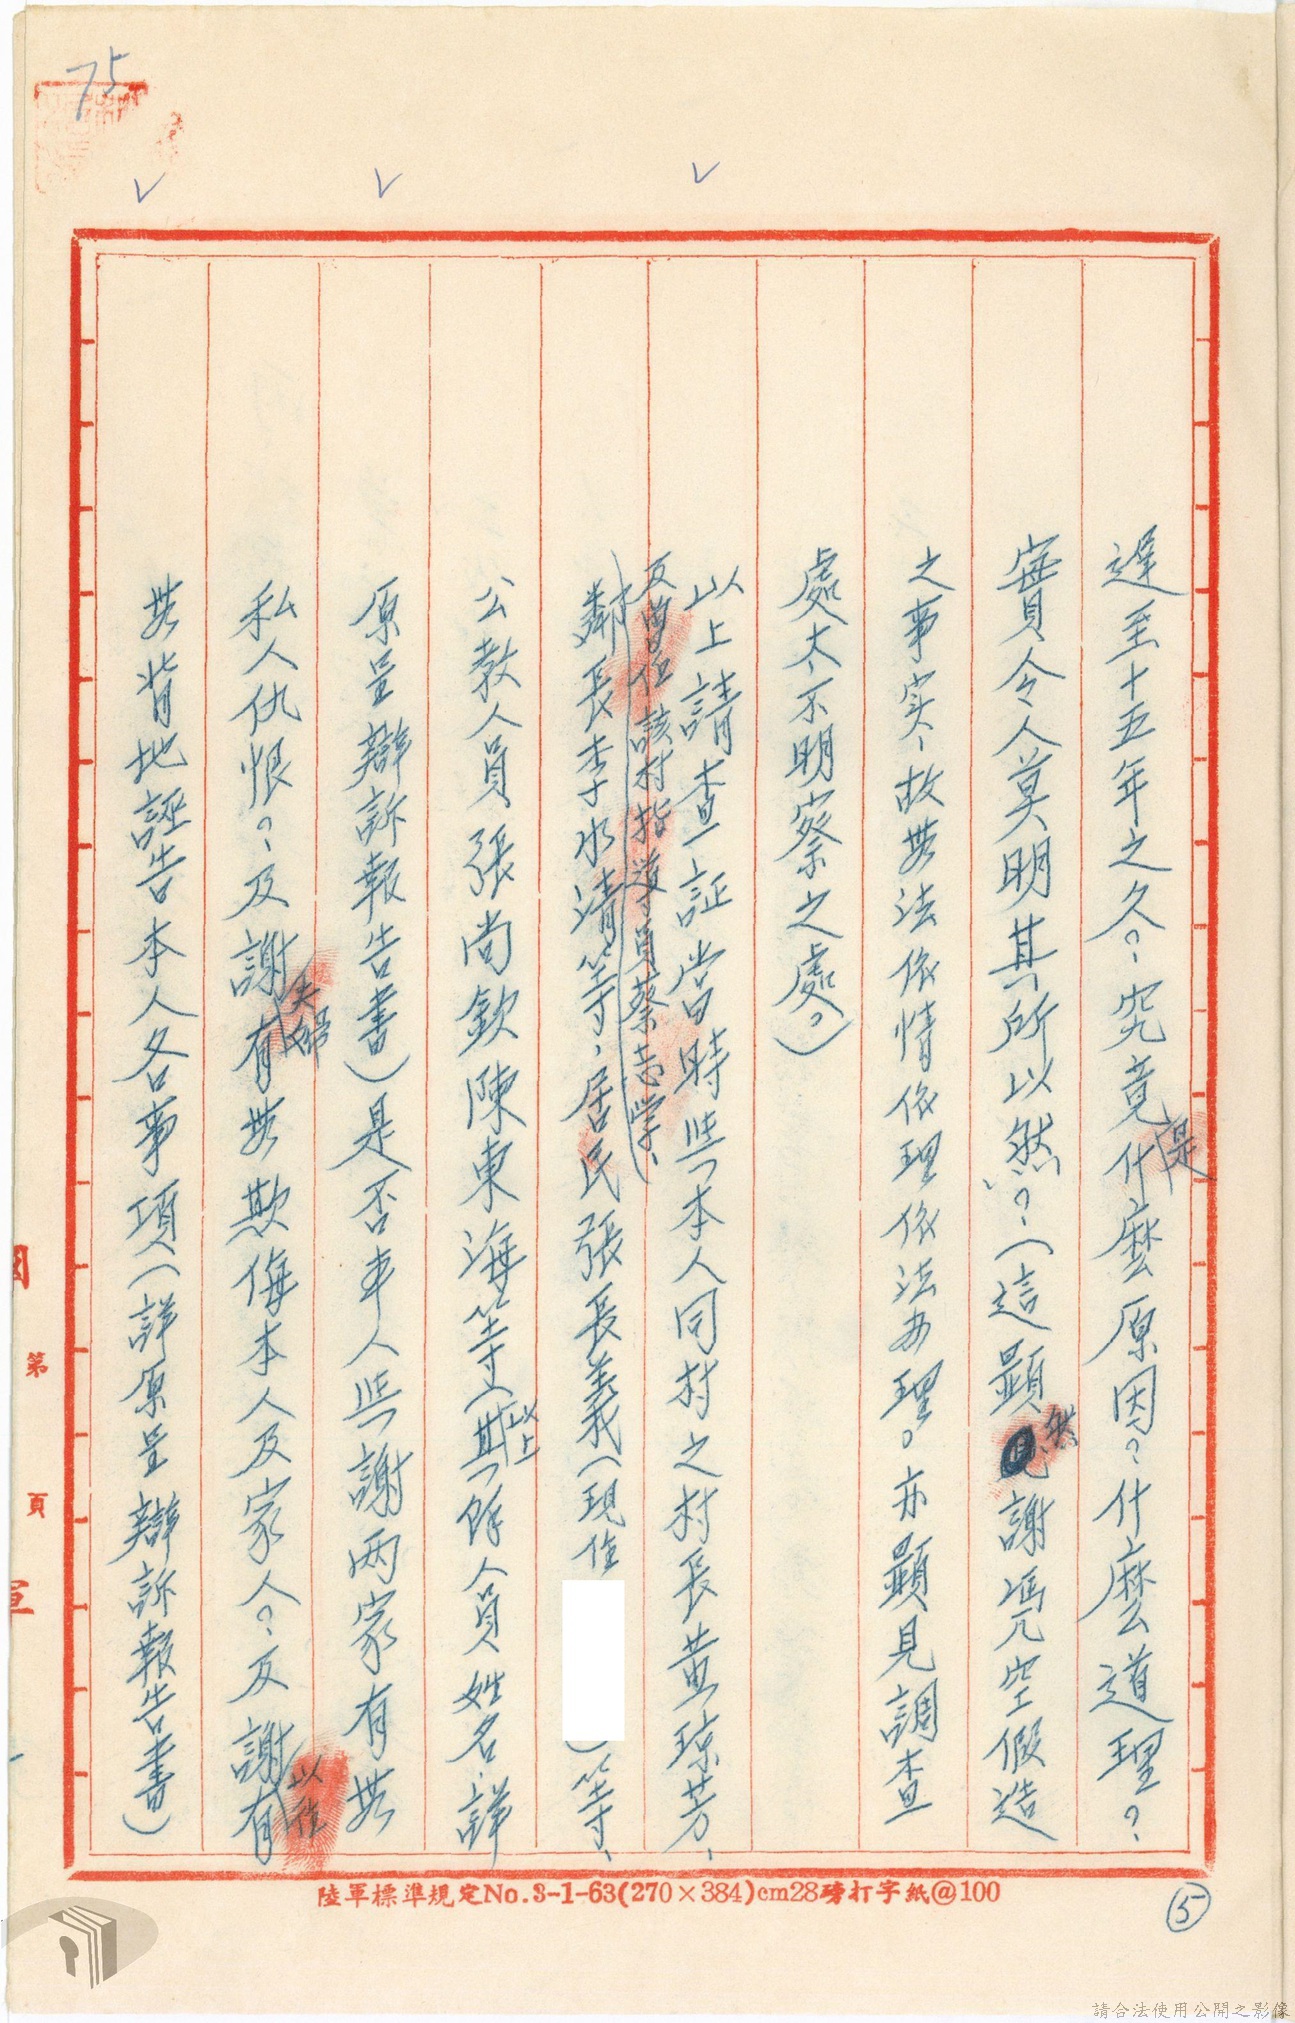 75
遲至十五年之久?究竟是什麼原因?什麼道理?
實令人莫明其所以然?(這顯然謝憑空假造
之事实、故無法依情依理依法办理。亦顯見調查
處太不明察之處。)
以上請查証當時與本人同村之村長黃琼芳、
及曾任該村指導員蔡志學、
鄰長李水清等、居民張長義(現住 )等、
公教人員張尚欽陳東海等(以上其餘人員姓名詳
原呈辯訴報告書)是否本人與謝兩家有無
私人仇恨?及謝夫婦有無欺侮本人及家人?及謝以往有
無背地誣告本人各事項(詳原呈辯訴報告書)
陸軍標準規定No.3-1-63(270×384)cm28磅打字紙@100
5
第 頁
請合法使用公開之影像